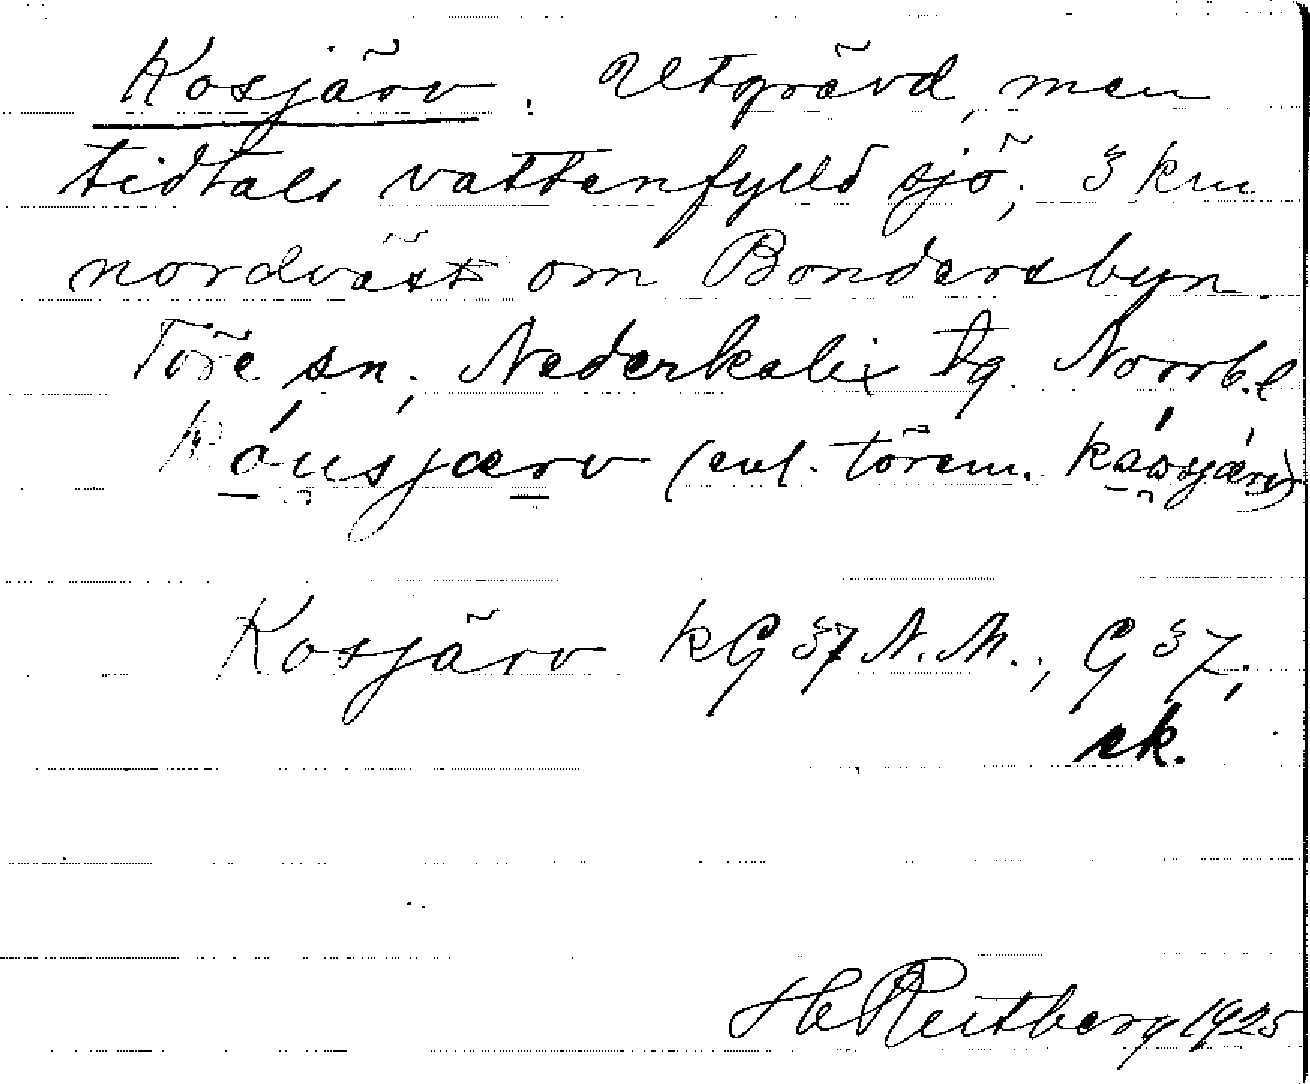 Kosjärv. Utgrävd, men
tidtals vattenfylld sjö, 3 km
nordväst om Bondersbyn
Töre sn, Nederkalix tg. Norrb. l
kóusjærv (enl. törem. káosjærv)
Kosjärv kG 37 N.M., G 37,
ek.
H Reitberg 1925